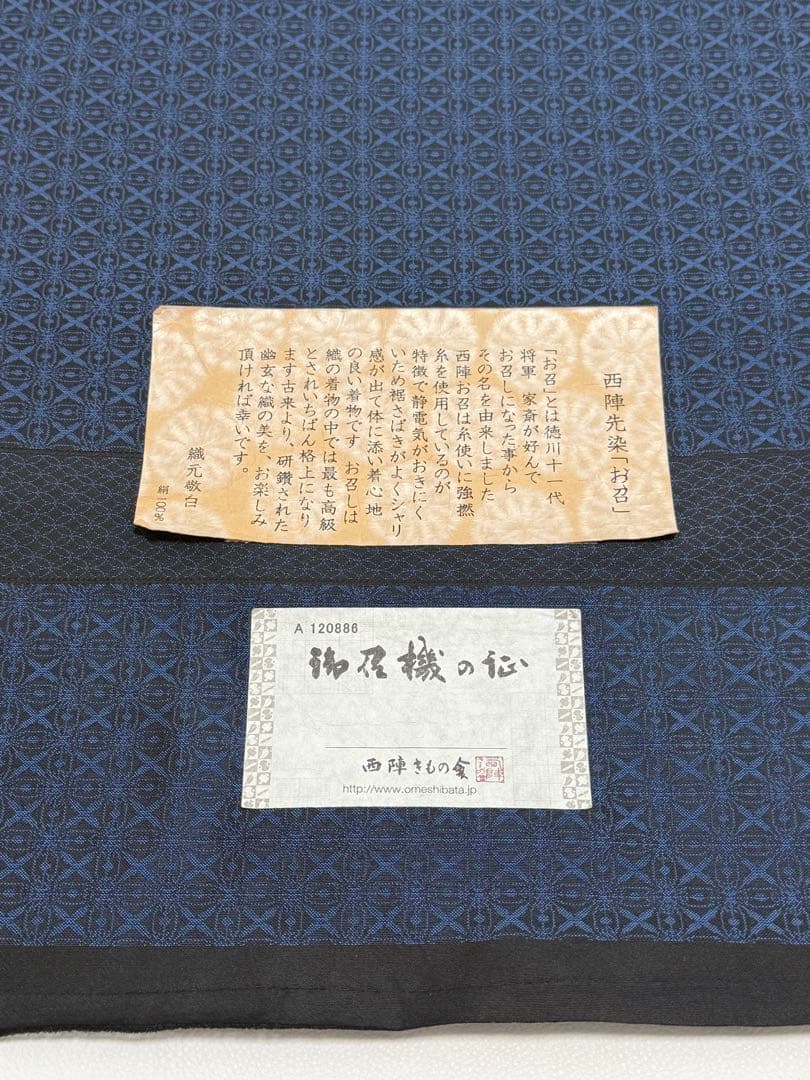 西陣先染「お召」
「お召」とは徳川十一代
将軍　家斎が好んで
お召しになった事から
その名を由来しました
西陣お召は糸使いに強撚
糸を使用しているのが
特徴で静電気がおきにく
いため裾さばきがよくシャリ
感が出て体に添い着心地
の良い着物です　お召しは
織の着物の中では最も高級
とされいちばん格上になり
ます古来より、研鑽された
幽玄な織の美を、お楽しみ
頂ければ幸いです。
織元敬白
絹一〇〇%
A 120886
御召機の証
西陣きもの会
http://www.omeshibata.jp